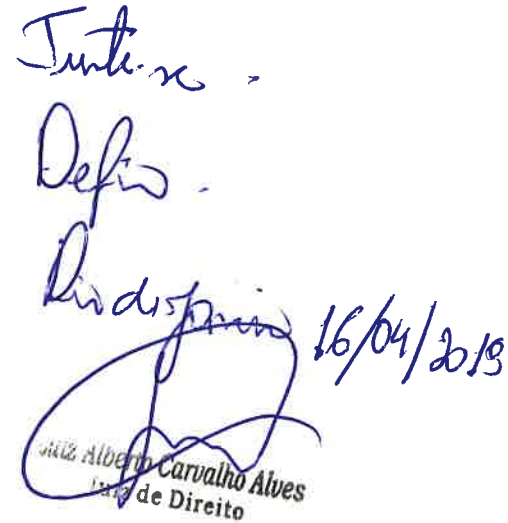 Junte-se.
Defiro.
Rio de Janeiro 16/04/2019
Luiz Alberto Carvalho Alves
Juiz de Direito